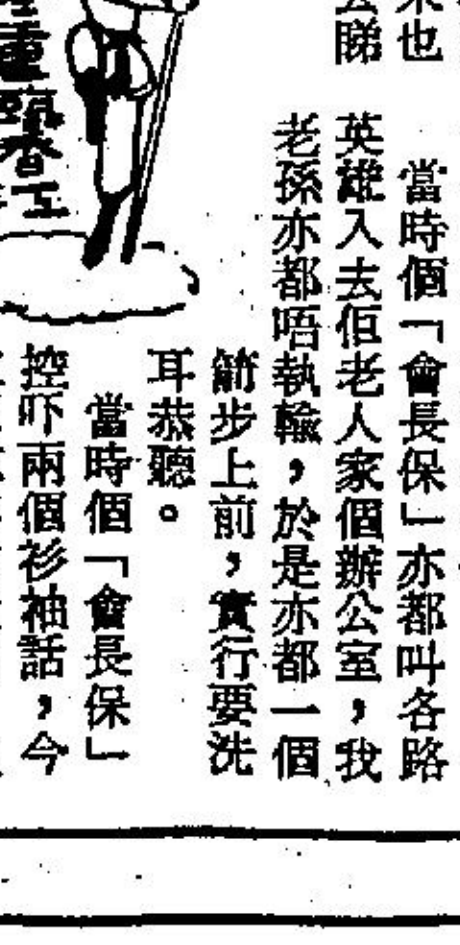 也
當時個「會長保」亦都叫各路
睇
英雄入去佢老人家個辦公室，我
老孫亦都唔執輸，於是亦都一個
箭步上前，實行要洗
耳恭聽。
當時個「會長保」
控吓兩個衫袖話，今